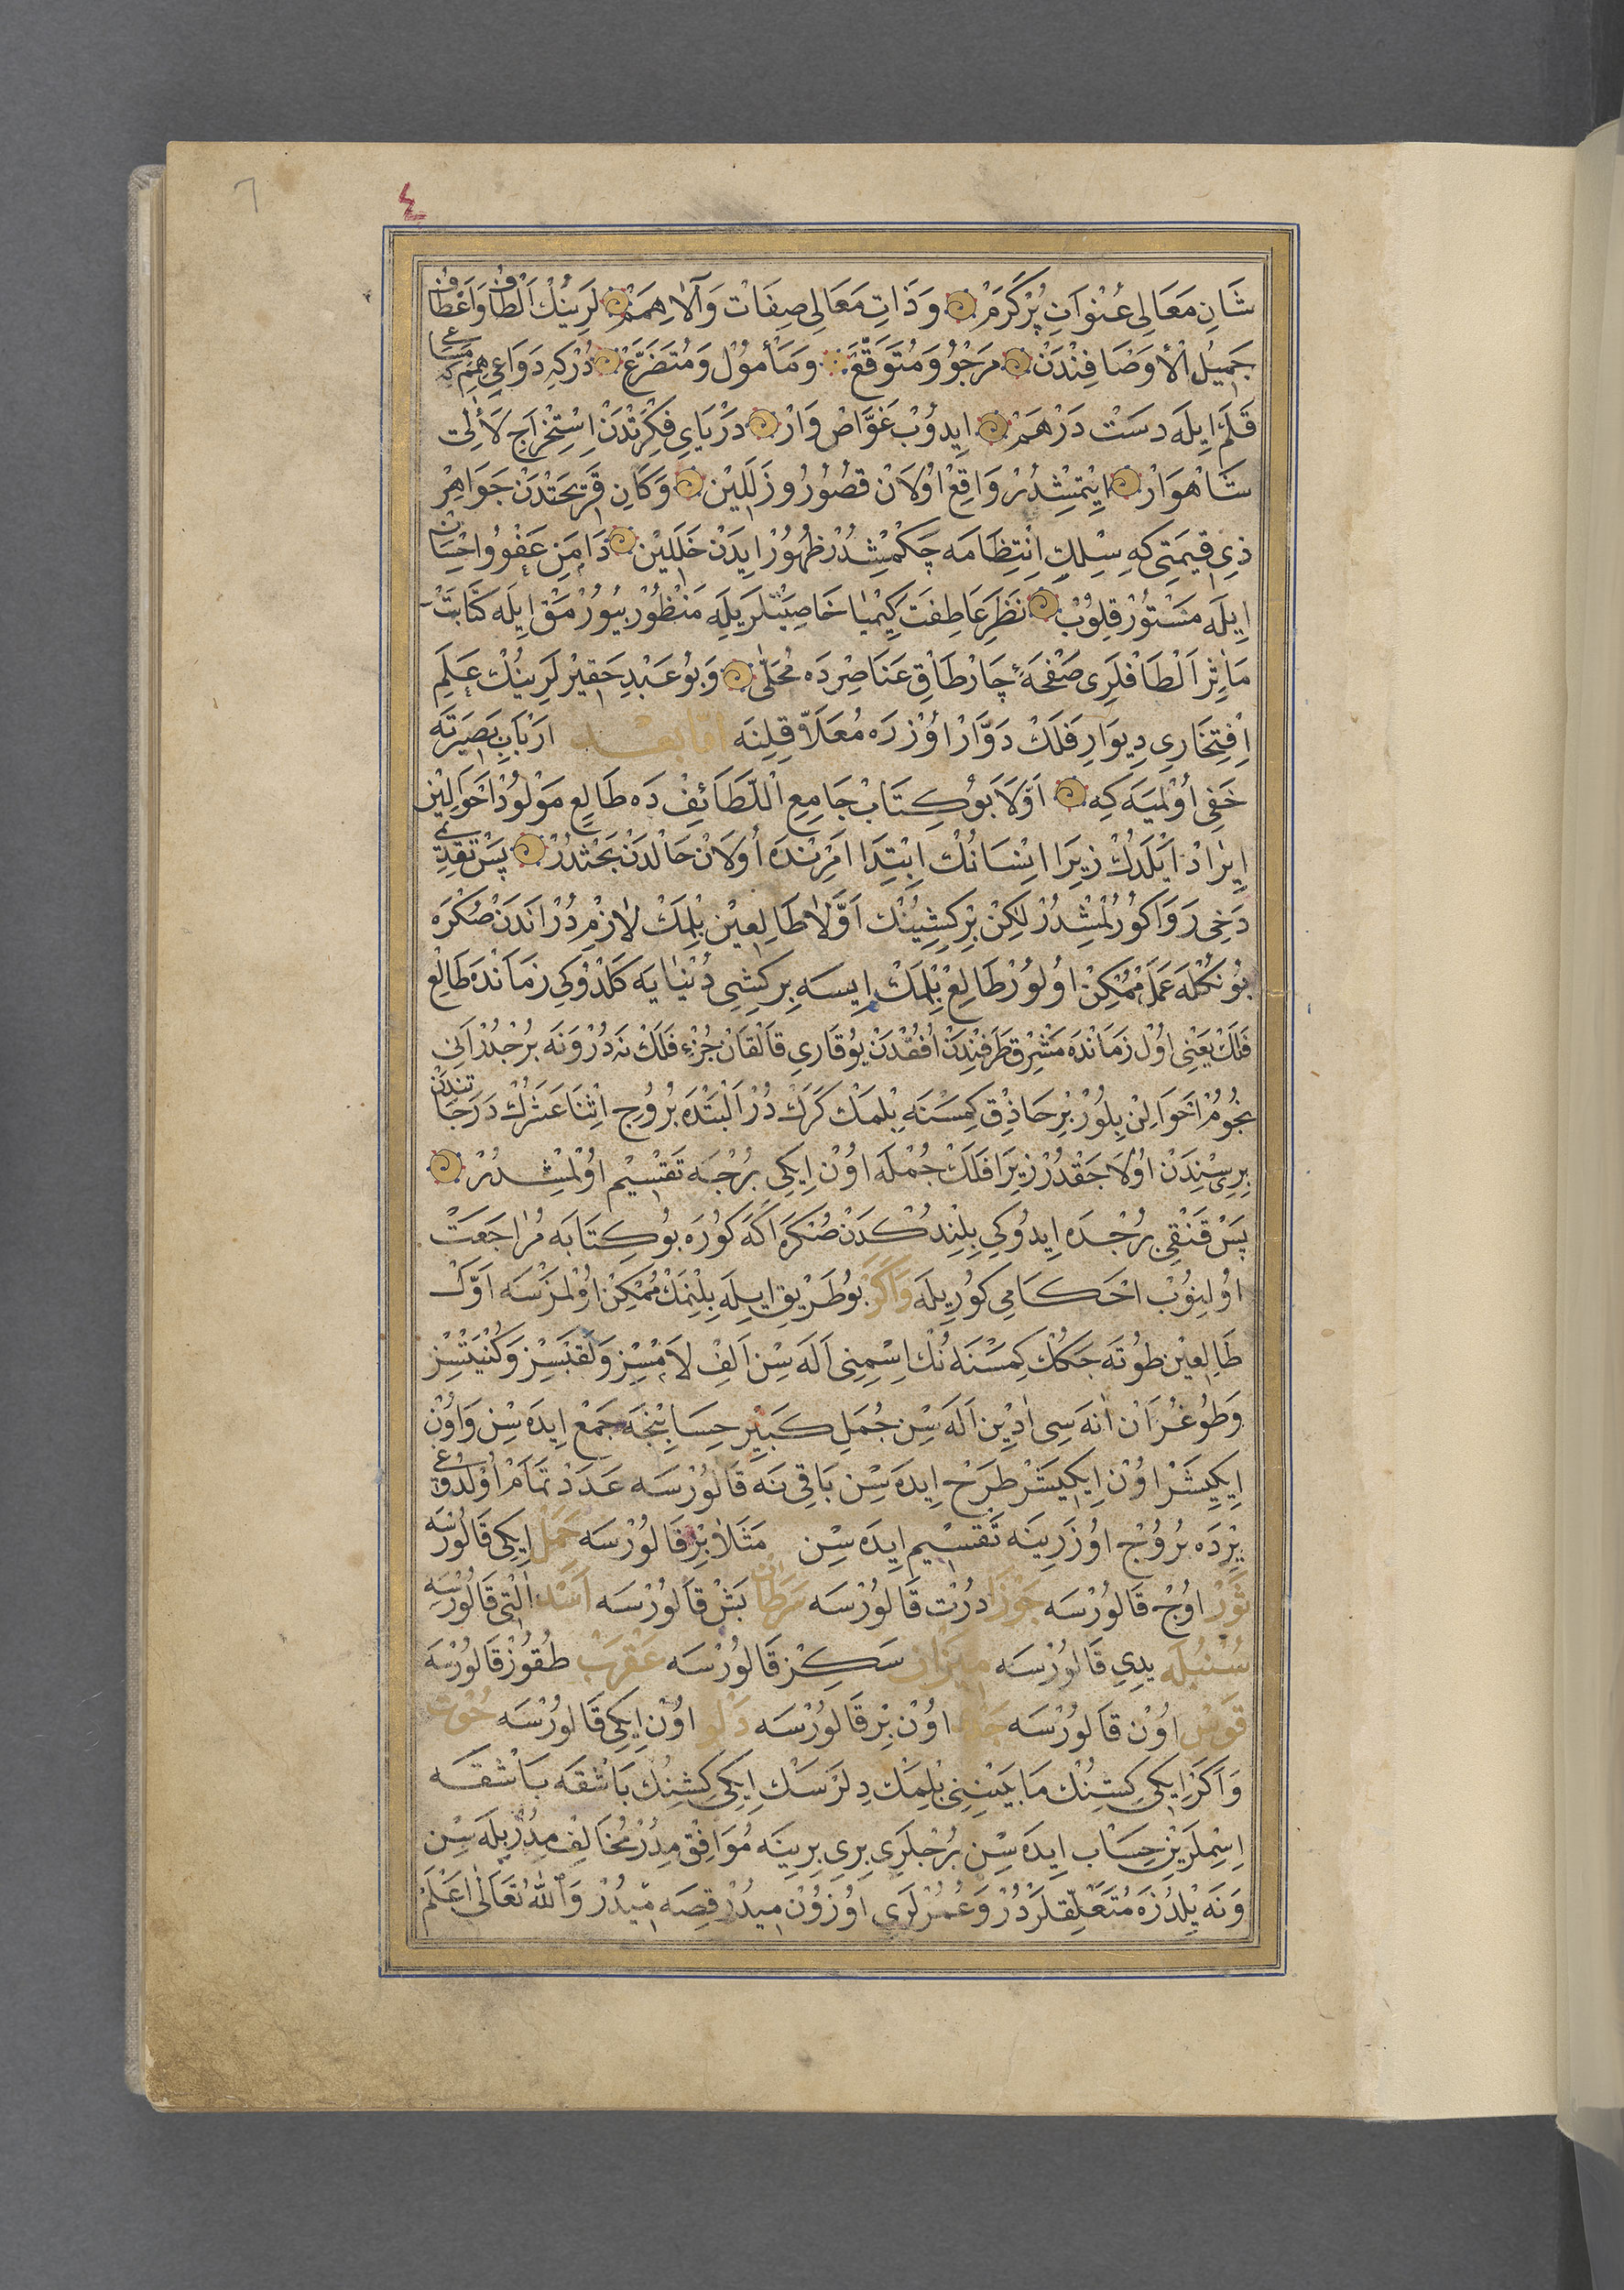 ٤
شَانِ مَعَالِی عُنْوَانِ پُرْكَرَمْ وَذَاتِ مَعَالِی صِفَاتْ وَآلَا هِمَمْ لَرِینُكْ اَلْطَافْ وَاَعْطَافْ
جَمِیلُ الْاَوْصَافِنْدَنْ مَرْجُوْ وَمُتَوَقَّعْ وَمَأْمُولْ وَمُتَضَرَّعْ دُرْكِهِ دَوَاعِی
قَلَمْ اِیلَه دَسْت دَرْهَمْ اِیدُوْبْ غَوَّاصْ وَارْ دَرْیَایِ فِكْرَتْدَنْ اِسْتِخْرَاجِ لَأٰلِیِ
شَاهْوَارْ اِیتْمِشْدُرْ وَاقِعْ اوُلَانْ قُصُورُ وزَلَلِیْن وَكَانِ قَرِیحَتْدَنْ جَوَاهِرْ
ذِی قِیمَتِی كِهِ سِلْكِ اِنْتِظَامَه چَكْمِشْدُرْ ظُهُورْ اِیدَنْ خَلَلِیْن دَامَنِ عَفْوُ وِاحْسَانْ
اِیلَه مَسْتُورْ قِلُوبْ نَظَرِ عَاطِفَتْ كِیمْیَا خَاصِیَّتْلَرِیلَه مَنْظُورْ بُیُورْمَقْ اِیلَه كِتَابَتْ
مَاٰثِرْ اَلْطَافْلَرِی صَفْحَۀِ چَارْطَاقِ عَنَاصِرْدَه مُحَلّٰی وَبُو عَبْدِ حَقِیرْلَرِینُكْ عَلَمِ
اِفْتِخَارِی دِیوَارِ فَلَكْ دَوَّارْ اُوْزْرَه مُعَلَّا قِلِنَه اَمَّا بَعْد اَرْبَابِ بَصِیرَتَه
خَفِی اُوْلْمَیَه كِه اَوَّلَا بُو كِتَابْ جَامِعِ اللَّطَائِفْ دَه طَالِعِ مَوْلُودْ اَحْوَالِیْن
اِیرَادْ اَیْلَدُكْ زِیرَا اِنْسَانُكْ اِبْتِدَا اَمْرِنْدَه اُولَانْ حَالْدَنْ بَحْثْدُرْ پَسْ تَقْدِیمِی
دَخِی رَوَا كُورُلْمُشْدُرْ لٰكِنْ بِرْ كِشِینُكْ اَوَّلَا طَالِعِیْن بِلْمَكْ لَازِمْ دُرْ اَنْدَنْ صُكْرَه
بُونُكْلَه عَمَلْ مُمْكِنْ اُولُورْ طَالِعْ بِلْمَكْ اِیسَه بِر كِشِی دُنْیَایَه كَلْدُوكِی زَمَانْدَه طَالِعْ
فَلَكْ یَعْنِی اوُلْ زَمَانْدَه مَشْرِقْ طَرَفِنْدَنْ اُفُقْدَنْ یُوقَارِی قَالْقَانْ جُزْءِ فَلَكْ نَه دُرْ وَنَه بُرْجْدُرْ اَنِی
نُجُومْ اَحْوَالِنْ بِلُورْ بِرْ حَاذِقْ كِمْسَنَه بِلْمَكْ كَرَكْ دُرْ اَلْبَتَّدَه بُرُوجِ اِثْنَا عَشَرُكْ دَرَجَاتِنْدَنْ
بِرِیسِنْدَنْ اوُلَاجَقْدُرْ زِیرَا فَلَكْ جُمْلَه اوُنْ اِیكِی بُرْجَه تَقْسِیمْ اوُلْمِشْدُرْ
پَسْ قَنْقِی بُرْجْدَه اِیدُوكِی بِلِنْدُكْدَنْ صُكْرَه اَكَه كُورَه بُو كِتَابَه مُرَاجَعَتْ
اوُلِنُوبْ اَحْكَامِی كُورِیلَه وَاَكَرْ بُو طَرِیقْ اِیلَه بِلِنْمَكْ مُمْكِنْ اوُلْمَزْسَه اَوَّلْ
طَالِعِیْن طُوتَه جَكُكْ كِمْسَنَه نُكْ اِسْمِینِی اَلَه سِنْ اَلِفْ لَامْسِزْ وَلَقَبْسِزْ وَكُنْیَتْسِزْ
وَطُوغُرَانْ اٰنَه سِی اَدِیْن اَلَه سِنْ جُمَلِ كَبِیرْ حِسَابِنْجَه جَمْع اِیدَه سِنْ وَاوُنْ
اِیكِیشَرْ اوُنْ اِیكِیشَرْ طَرْحْ اِیدَه سِنْ بَاقِی نَه قَالُورْسَه عَدَدْ تَمَامْ اوُلْدُوغِی
یِرْدَه بُرُوجْ اوُزَرِینَه تَقْسِیم اِیدَه سِنْ مَثَلَا بِرْ قَالُورْسَه حَمَلْ اِیكِی قَالُورْسَه
ثَوْرْ اوُچْ قَالُورْسَه جَوْزَا دُرْت قَالُورْسَه سَرَطَانْ بَشْ قَالُورْسَه اَسَدْ اٰلْتِی قَالُورْسَه
سُنْبُلَه یدِی قَالُورْسَه مِیزَان سَكِزْ قَالُورْسَه عَقْرَبْ طُقُوزْ قَالُورْسَه
قَوْسْ اوُنْ قَالُورْسَه جَدْی اوُنْ بِرْ قَالُورْسَه دَلْو اوُنْ اِیكِی قَالُورْسَه حُوتْ
وَاَكَرْ اِیكِی كِشِنُكْ مَابَیْنِنِی بِلْمَكْ دِلَرْسَكْ اِیكِی كِشِنُكْ بَاشْقَه بَاشْقَه
اِسْمْلَرِیْن حِسَابْ اِیدَه سِنْ بُرْجْلَرِی بِرِی بِرِینَه مُوَافِقْ مِدُرْ مُخَالِفْ مِدُرْ بِلَه سِنْ
وَنَه یِلْدُزَه مُتَعَلِّقْلَرْدُرْ وَعُمُرْلَرِی اوُزُونْ مِیدُرْ قِصَه مِیدُرْ وَاللّٰهُ تَعَالٰی اَعْلَمْ